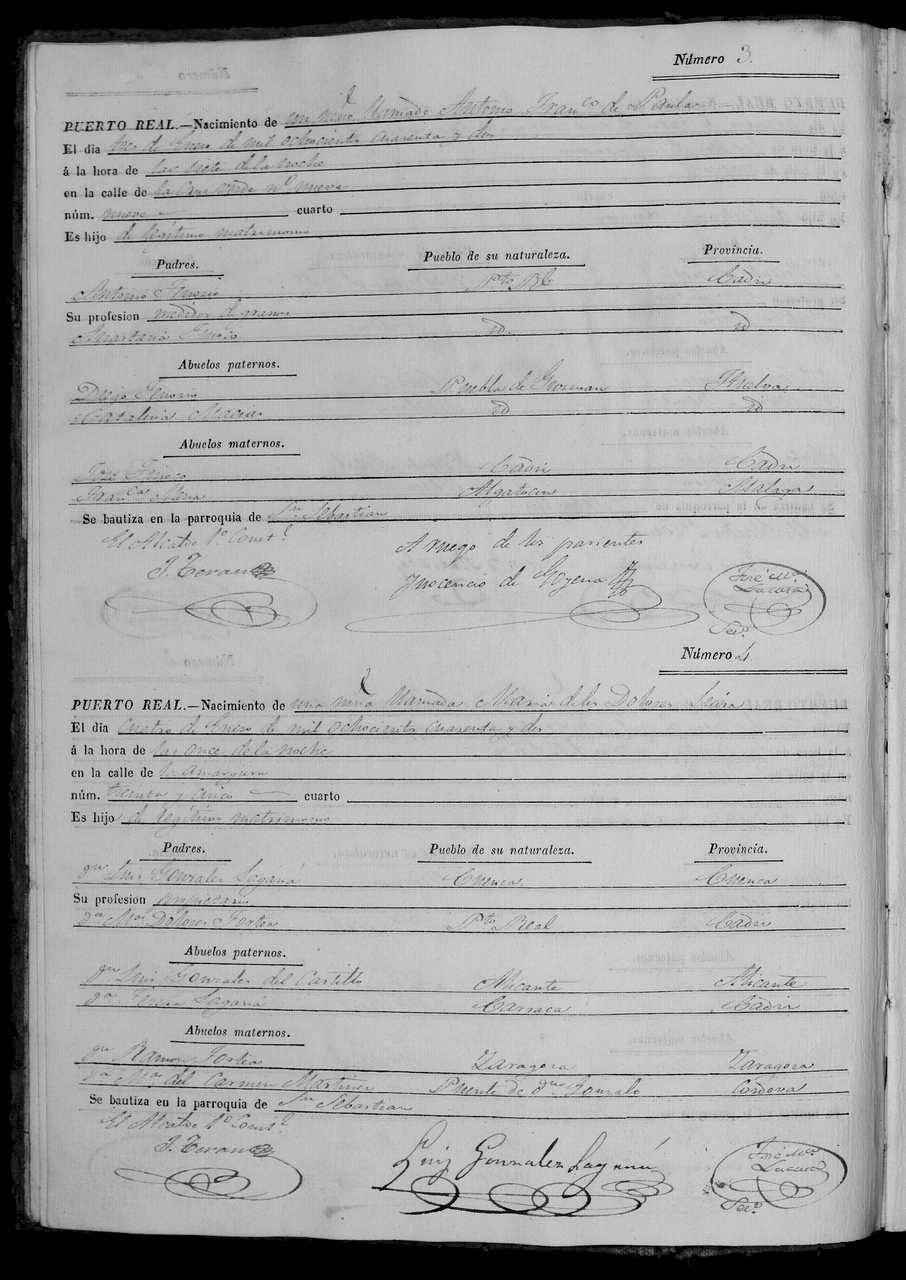 Número 3.
PUERTO REAL.—Nacimiento de un niño llamado Antonio Fran.co de Paula
El dia tres de Enero de mil ochocientos cuarenta y dos
á la hora de las siete de la noche
en la calle de la Cruz verde nº nueve
núm. nueve cuarto
Es hijo de legitimo matrimonio
Padres. Pueblo de su naturaleza. Provincia.
Antonio Pto. Rl Cadiz
Su profesion medidor de granos
id. id
Abuelos paternos.
Diego Puebla de Guzman Huelva
Catalina Macias id id
Abuelos maternos.
José Cadiz Cadiz
Fran.ca Mena Algatocin Malaga
Se bautiza en la parroquia de Sn Sebastian
El Alcalde 1º Const.l
A ruego de los parientes
J. Teran
Inocencio de Goyena
José Ma. Lacosa
Sec.o
Número 4
PUERTO REAL.—Nacimiento de una niña llamada Maria de los Dolores
El dia cuatro de Enero de mil ochocientos cuarenta y dos
á la hora de las once de la noche
en la calle de la Amargura
núm. treinta y cinco cuarto
Es hijo de legitimo matrimonio
Padres. Pueblo de su naturaleza. Provincia.
Dn Luis Gonzalez Laganá Cuenca Cuenca
Su profesion
Da Ma. Dolores Fortea Pto Real Cadiz
Abuelos paternos.
Dn Luis Gonzalez del Castillo Alicante Alicante
Da Laganá Carraca Cadiz
Abuelos maternos.
Dn Ramon Fortea Zaragoza Zaragoza
Da Ma. del Carmen Martinez Puente de Dn Gonzalo Cordova
Se bautiza en la parroquia de Sn Sebastian
El Alcalde 1º Const.l
J. Teran
Luis Gonzalez Laganá
José Ma. Lacosa
Sec.o